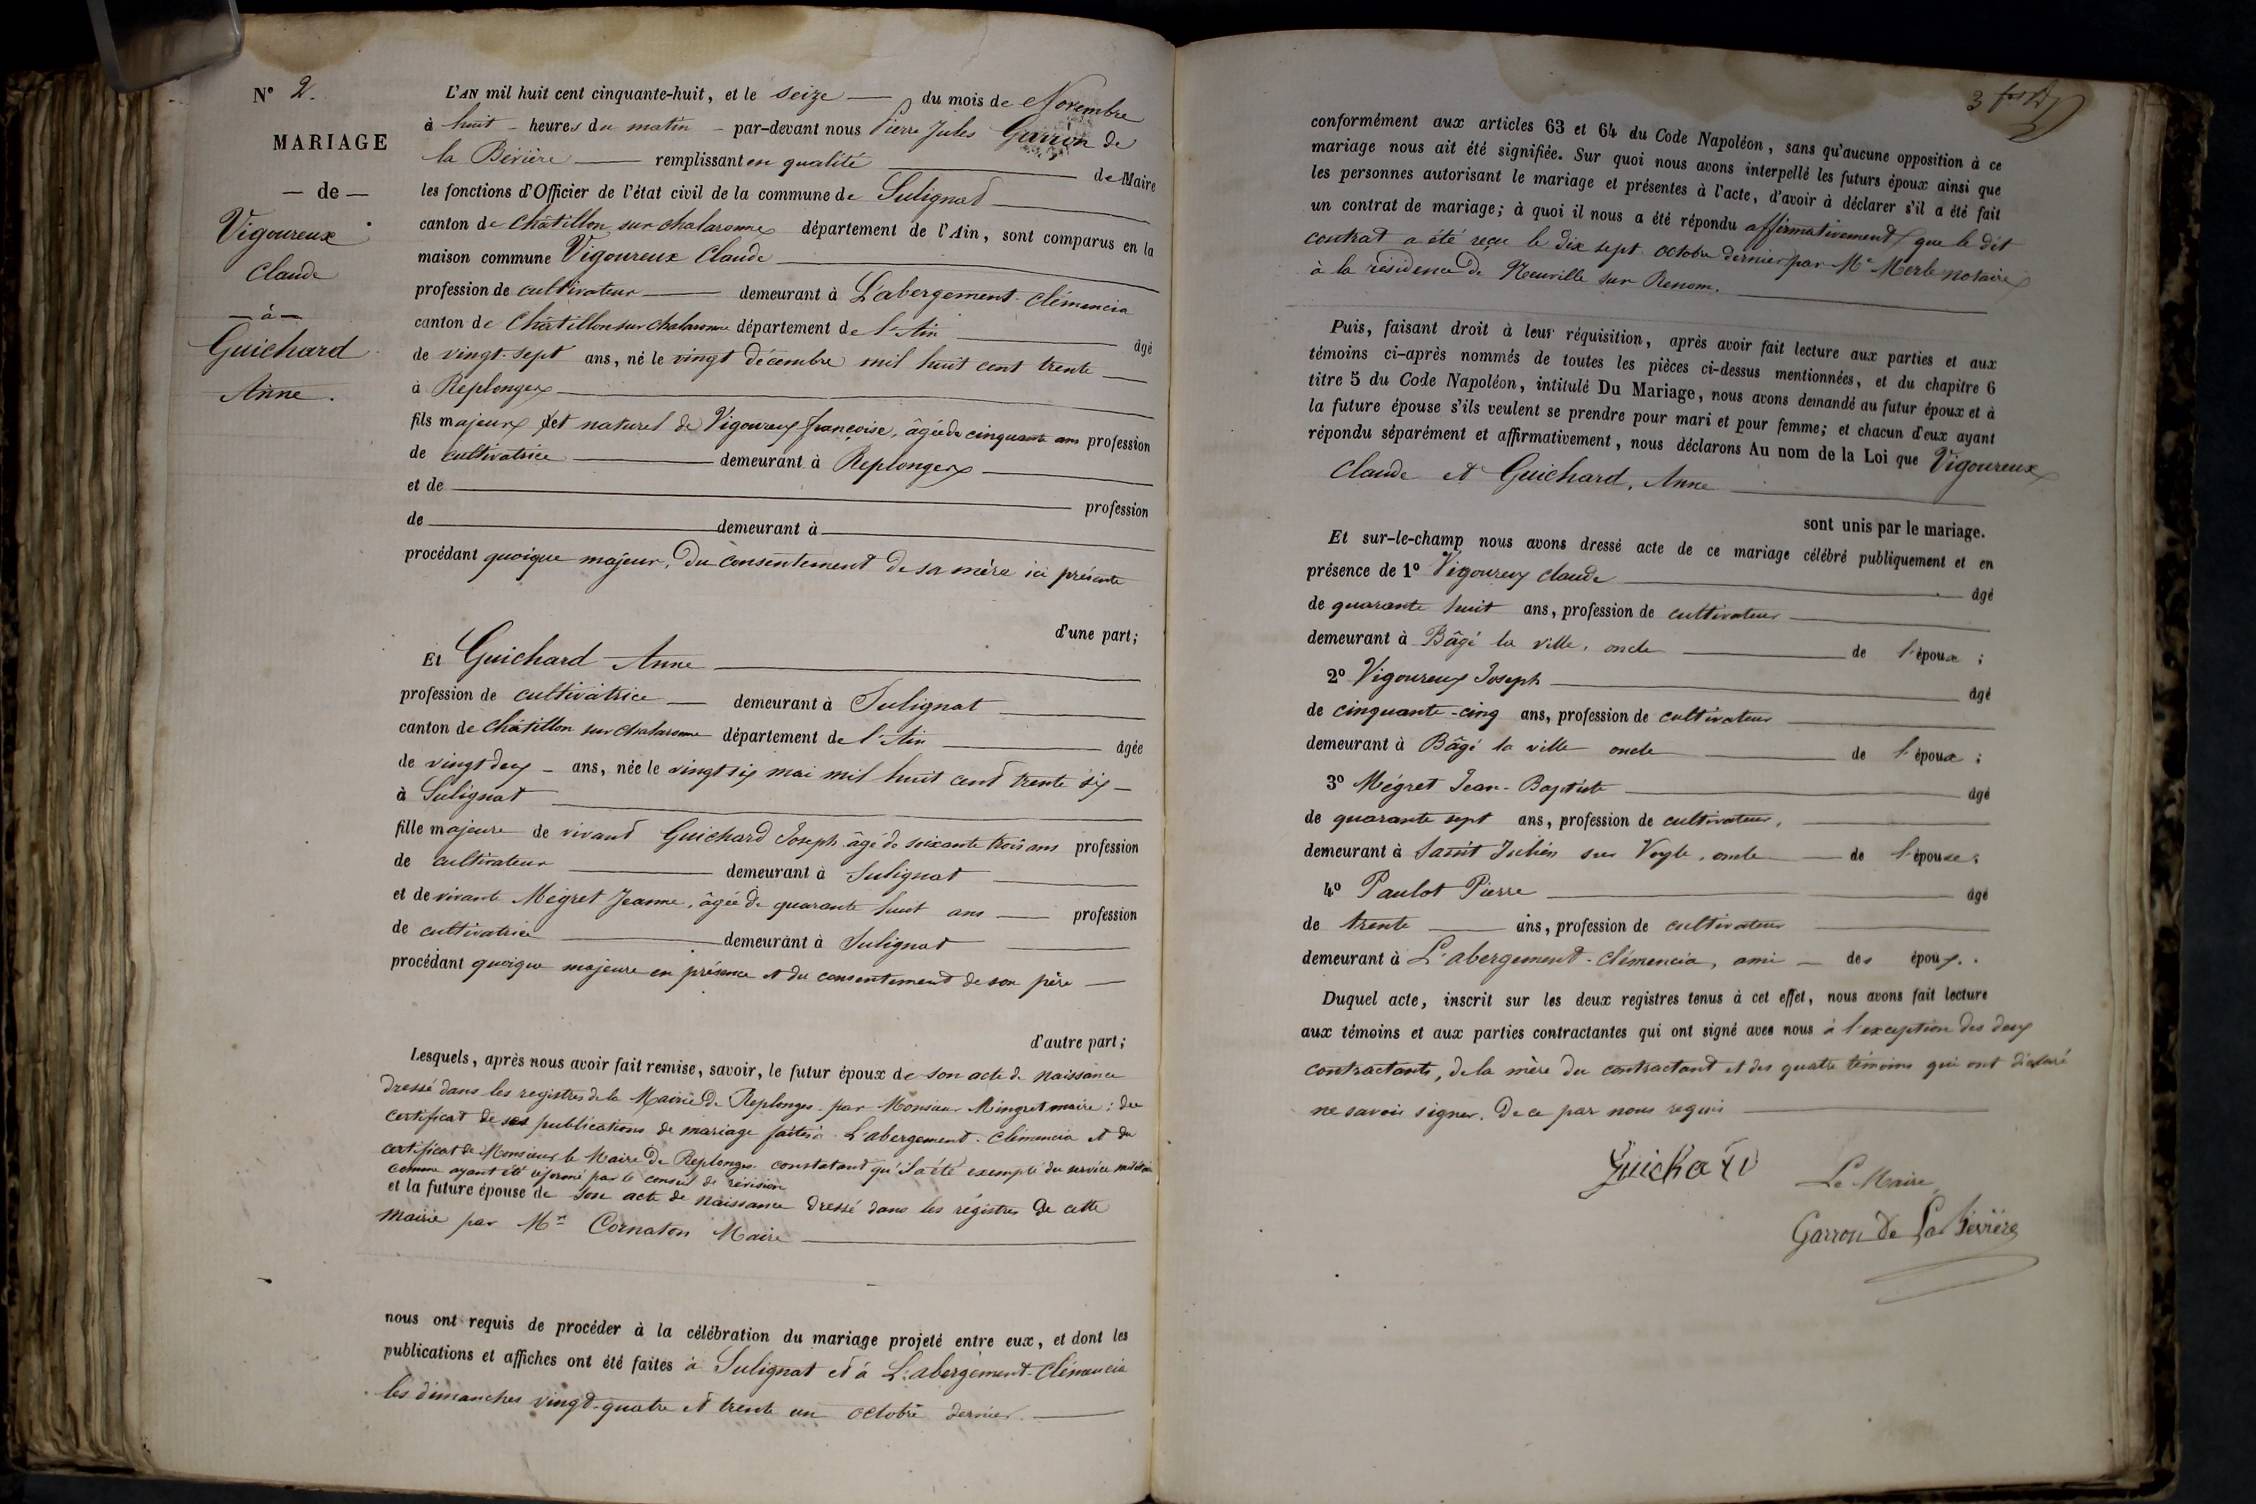 N° 2.
MARIAGE
— de —
Vigoureux
Claude
— à —
Guichard
Anne.
L'AN mil huit cent cinquante-huit, et le seize du mois de Novembre
à huit heures du matin par-devant nous Pierre Jules Garron de
la Bévière remplissant en qualité de Maire
les fonctions d'Officier de l'état civil de la commune de Sulignat
canton de Châtillon sur chalaronne département de l'Ain, sont comparus en la
maison commune Vigoureux Claude
profession de cultivateur demeurant à L'abergement-clémencia
canton de Châtillon sur chalaronne département de l'Ain âgé
de vingt-sept ans, né le vingt décembre mil huit cent trente
à Replonges
fils majeur et naturel de Vigoureux françoise, âgée de cinquante ans profession
de cultivatrice demeurant à Replonges
et de profession
de demeurant à
procédant quoique majeur, du consentement de sa mère ici présente
d'une part;
Et Guichard Anne
profession de cultivatrice demeurant à Sulignat
canton de châtillon sur chalaronne département de l'Ain âgée
de vingt deux ans, née le vingt six mai mil huit cent trente six
à Sulignat
fille majeure de vivant Guichard Joseph âgé de soixante trois ans profession
de cultivateur demeurant à Sulignat
et de vivante Mégret Jeanne, âgée de quarante huit ans profession
de cultivatrice demeurant à Sulignat
procédant quoique majeure en présence et du consentement de son père
d'autre part;
Lesquels, après nous avoir fait remise, savoir, le futur époux de son acte de naissance
dressé dans les registres de la Mairie de Replonges par Monsieur Mingret maire; du
certificat de ses publications de mariage faites à L'abergement-Clémencia et du
certificat de Monsieur le Maire de Replonges constatant qu'il a été exempté du service militaire
comme ayant été réformé par le conseil de révision
et la future épouse de son acte de naissance dressé dans les régistres de cette
mairie par Mr Cornaton Maire
nous ont requis de procéder à la célébration du mariage projeté entre eux, et dont les
publications et affiches ont été faites à Sulignat et à L'abergement-Clémencia
les dimanches vingt-quatre et trente un octobre dernier.
3
conformément aux articles 63 et 64 du Code Napoléon, sans qu'aucune opposition à ce
mariage nous ait été signifiée. Sur quoi nous avons interpellé les futurs époux ainsi que
les personnes autorisant le mariage et présentes à l'acte, d'avoir à déclarer s'il a été fait
un contrat de mariage; à quoi il nous a été répondu affirmativement, que le dit
contrat a été reçu le dix sept octobre dernier par Me Merle notaire
à la résidence de Neuville sur Renom.
Puis, faisant droit à leur réquisition, après avoir fait lecture aux parties et aux
témoins ci-après nommés de toutes les pièces ci-dessus mentionnées, et du chapitre 6
titre 5 du Code Napoléon, intitulé Du Mariage, nous avons demandé au futur époux et à
la future épouse s'ils veulent se prendre pour mari et pour femme; et chacun d'eux ayant
répondu séparément et affirmativement, nous déclarons Au nom de la Loi que Vigoureux
Claude et Guichard, Anne
sont unis par le mariage.
Et sur-le-champ nous avons dressé acte de ce mariage célébré publiquement et en
présence de 1° Vigoureux claude âgé
de quarante huit ans, profession de cultivateur
demeurant à Bâgé la ville, oncle de l'époux;
2° Vigoureux Joseph âgé
de cinquante-cinq ans, profession de cultivateur
demeurant à Bâgé la ville oncle de l'époux;
3° Mégret Jean-Baptiste âgé
de quarante sept ans, profession de cultivateur,
demeurant à Saint Julien sur Veyle, oncle de l'épouse;
4° Paulot Pierre âgé
de trente ans, profession de cultivateur
demeurant à L'abergement-clémencia, ami des époux.
Duquel acte, inscrit sur les deux registres tenus à cet effet, nous avons fait lecture
aux témoins et aux parties contractantes qui ont signé avec nous à l'exception des deux
contractants, de la mère du contractant et des quatre témoins qui ont déclaré
ne savoir signer. De ce par nous requis
Guichard
Le Maire,
Garron de La Bévière